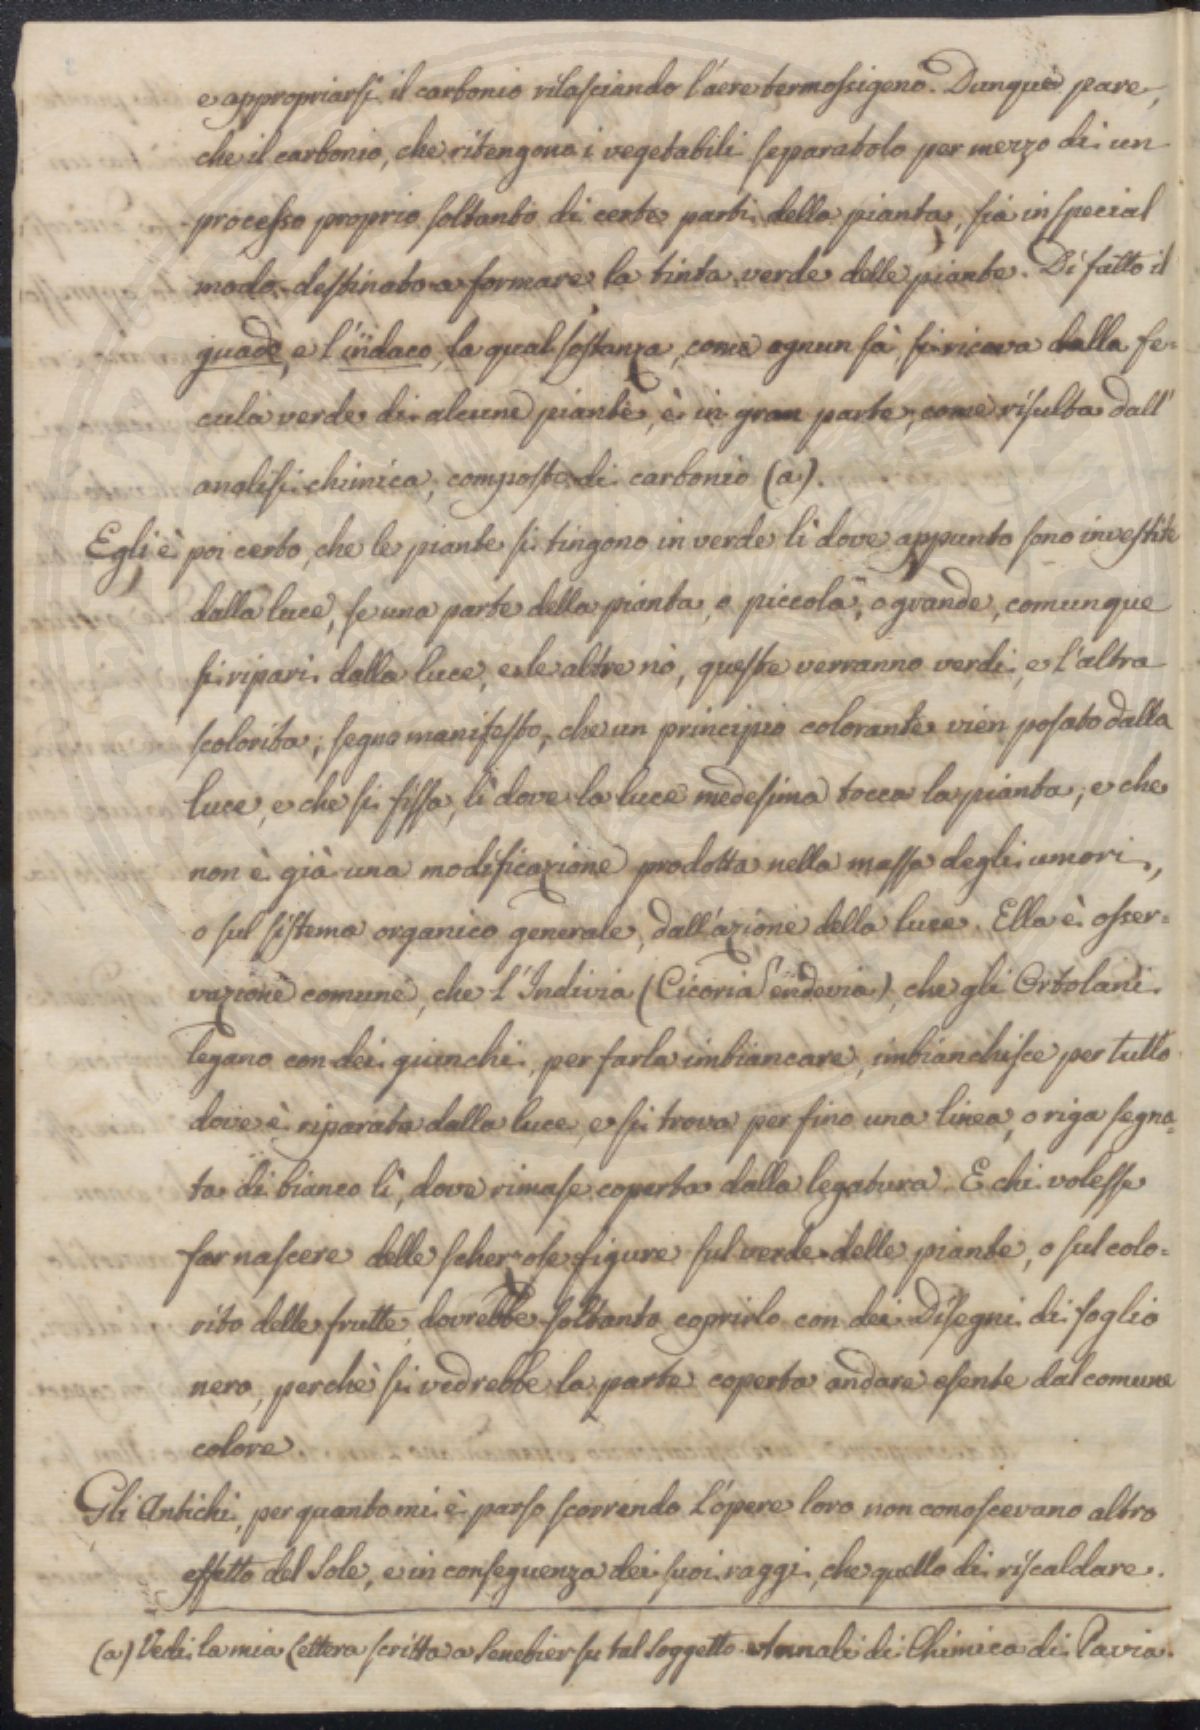 e appropriarsi il carbonio rilasciando l'aere termossigeno. Dunque pare,
che il carbonio, che ritengono i vegetabili separatolo per mezzo di un
processo proprio soltanto di certe parti della pianta, sia in special
modo destinato a formare la tinta verde delle piante. Di fatto il
guado, e l'indaco, la qual sostanza, come ognun sà si ricava dalla fe=
cula verde di alcune piante, è in gran parte, come risulta dall'
analisi chimica, composta di carbonio (a).
Egli è poi certo, che le piante si tingono in verde lì dove appunto sono investite
dalla luce, se una parte della pianta, o piccola, o grande, comunque
si ripari dalla luce, e le altre nò, queste verranno verdi, e l'altra
scolorita; segno manifesto, che un principio colorante vien posato dalla
luce, e che si fissa, lì dove la luce medesima tocca la pianta; e che
non è già una modificazione prodotta nella massa degli umori,
o sul sistema organico generale, dall'azione della luce. Ella è osser=
vazione comune, che l'Indivia (Cicoria endevia), che gli Ortolani
legano con dei giunchi, per farla imbiancare, imbianchisce per tutto
dove è riparata dalla luce, e si trova per fino una linea, o riga segna=
ta di bianco lì, dove rimase coperta dalla legatura. E chi volesse
far nascere delle scherzose figure sul verde delle piante, o sul colo=
rito delle frutte, dovrebbe soltanto coprirlo con dei Disegni di foglio
nero, perchè si vedrebbe la parte coperta andare esente dal comune
colore.
Gli Antichi, per quanto mi è parso scorrendo l'opere loro non conoscevano altro
effetto del Sole, e in conseguenza dei suoi raggi, che quello di riscaldare.
(a) Vedi la mia Lettera scritta a Senebier su tal soggetto Annali di Chimica di Pavia.